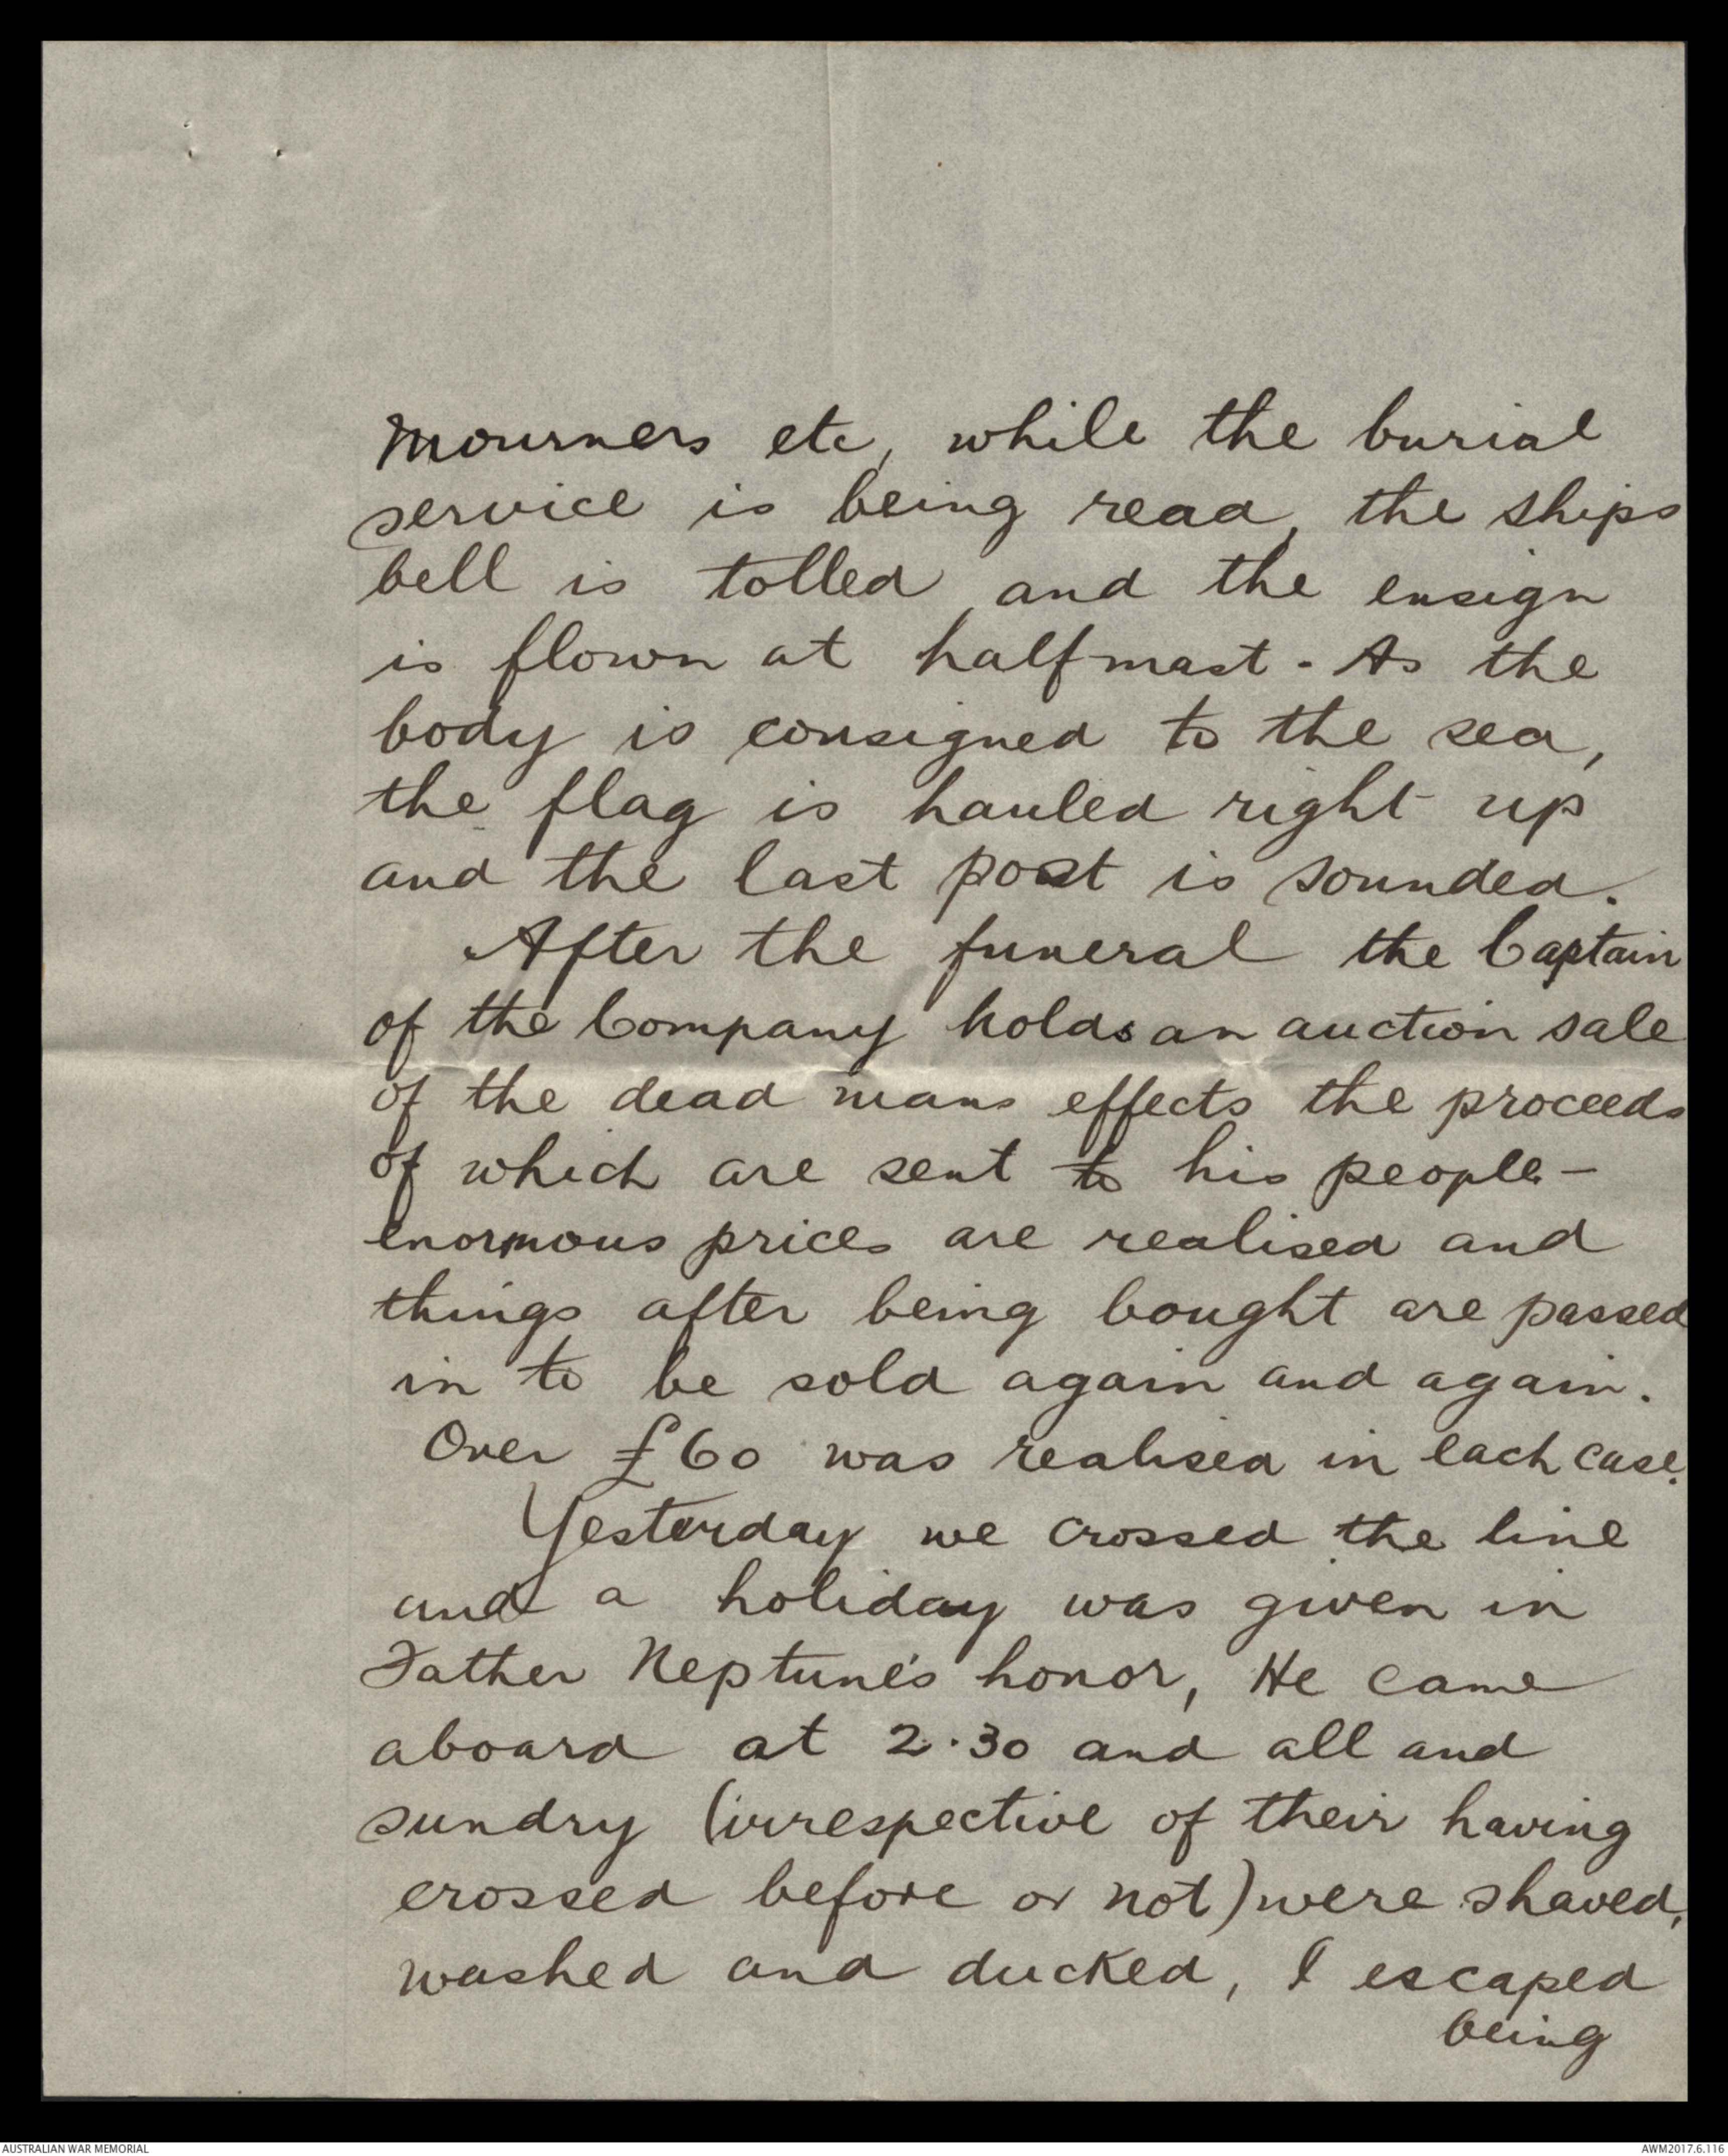 mourners etc, while the burial
service is being read, the ships
bell is tolled and the ensign
is flown at halfmast. As the
body is consigned to the sea,
the flag is hauled right up
and the last post is sounded.
After the funeral the Captain
of the Company holds an auction sale
of the dead mans effects the proceeds
of which are sent to his people -
enormous prices are realised and
things after being bought are passed
in to be sold again and again.
Over £60 was realised in each case.
Yesterday we crossed the line
and a holiday was given in
Father Neptune's honor, He came
aboard at 2.30 and all and
sundry (irrespective of their having
crossed before or not) were shaved,
washed and ducked, I escaped
being
AUSTRALIAN WAR MEMORIAL
AWM2017.6.116